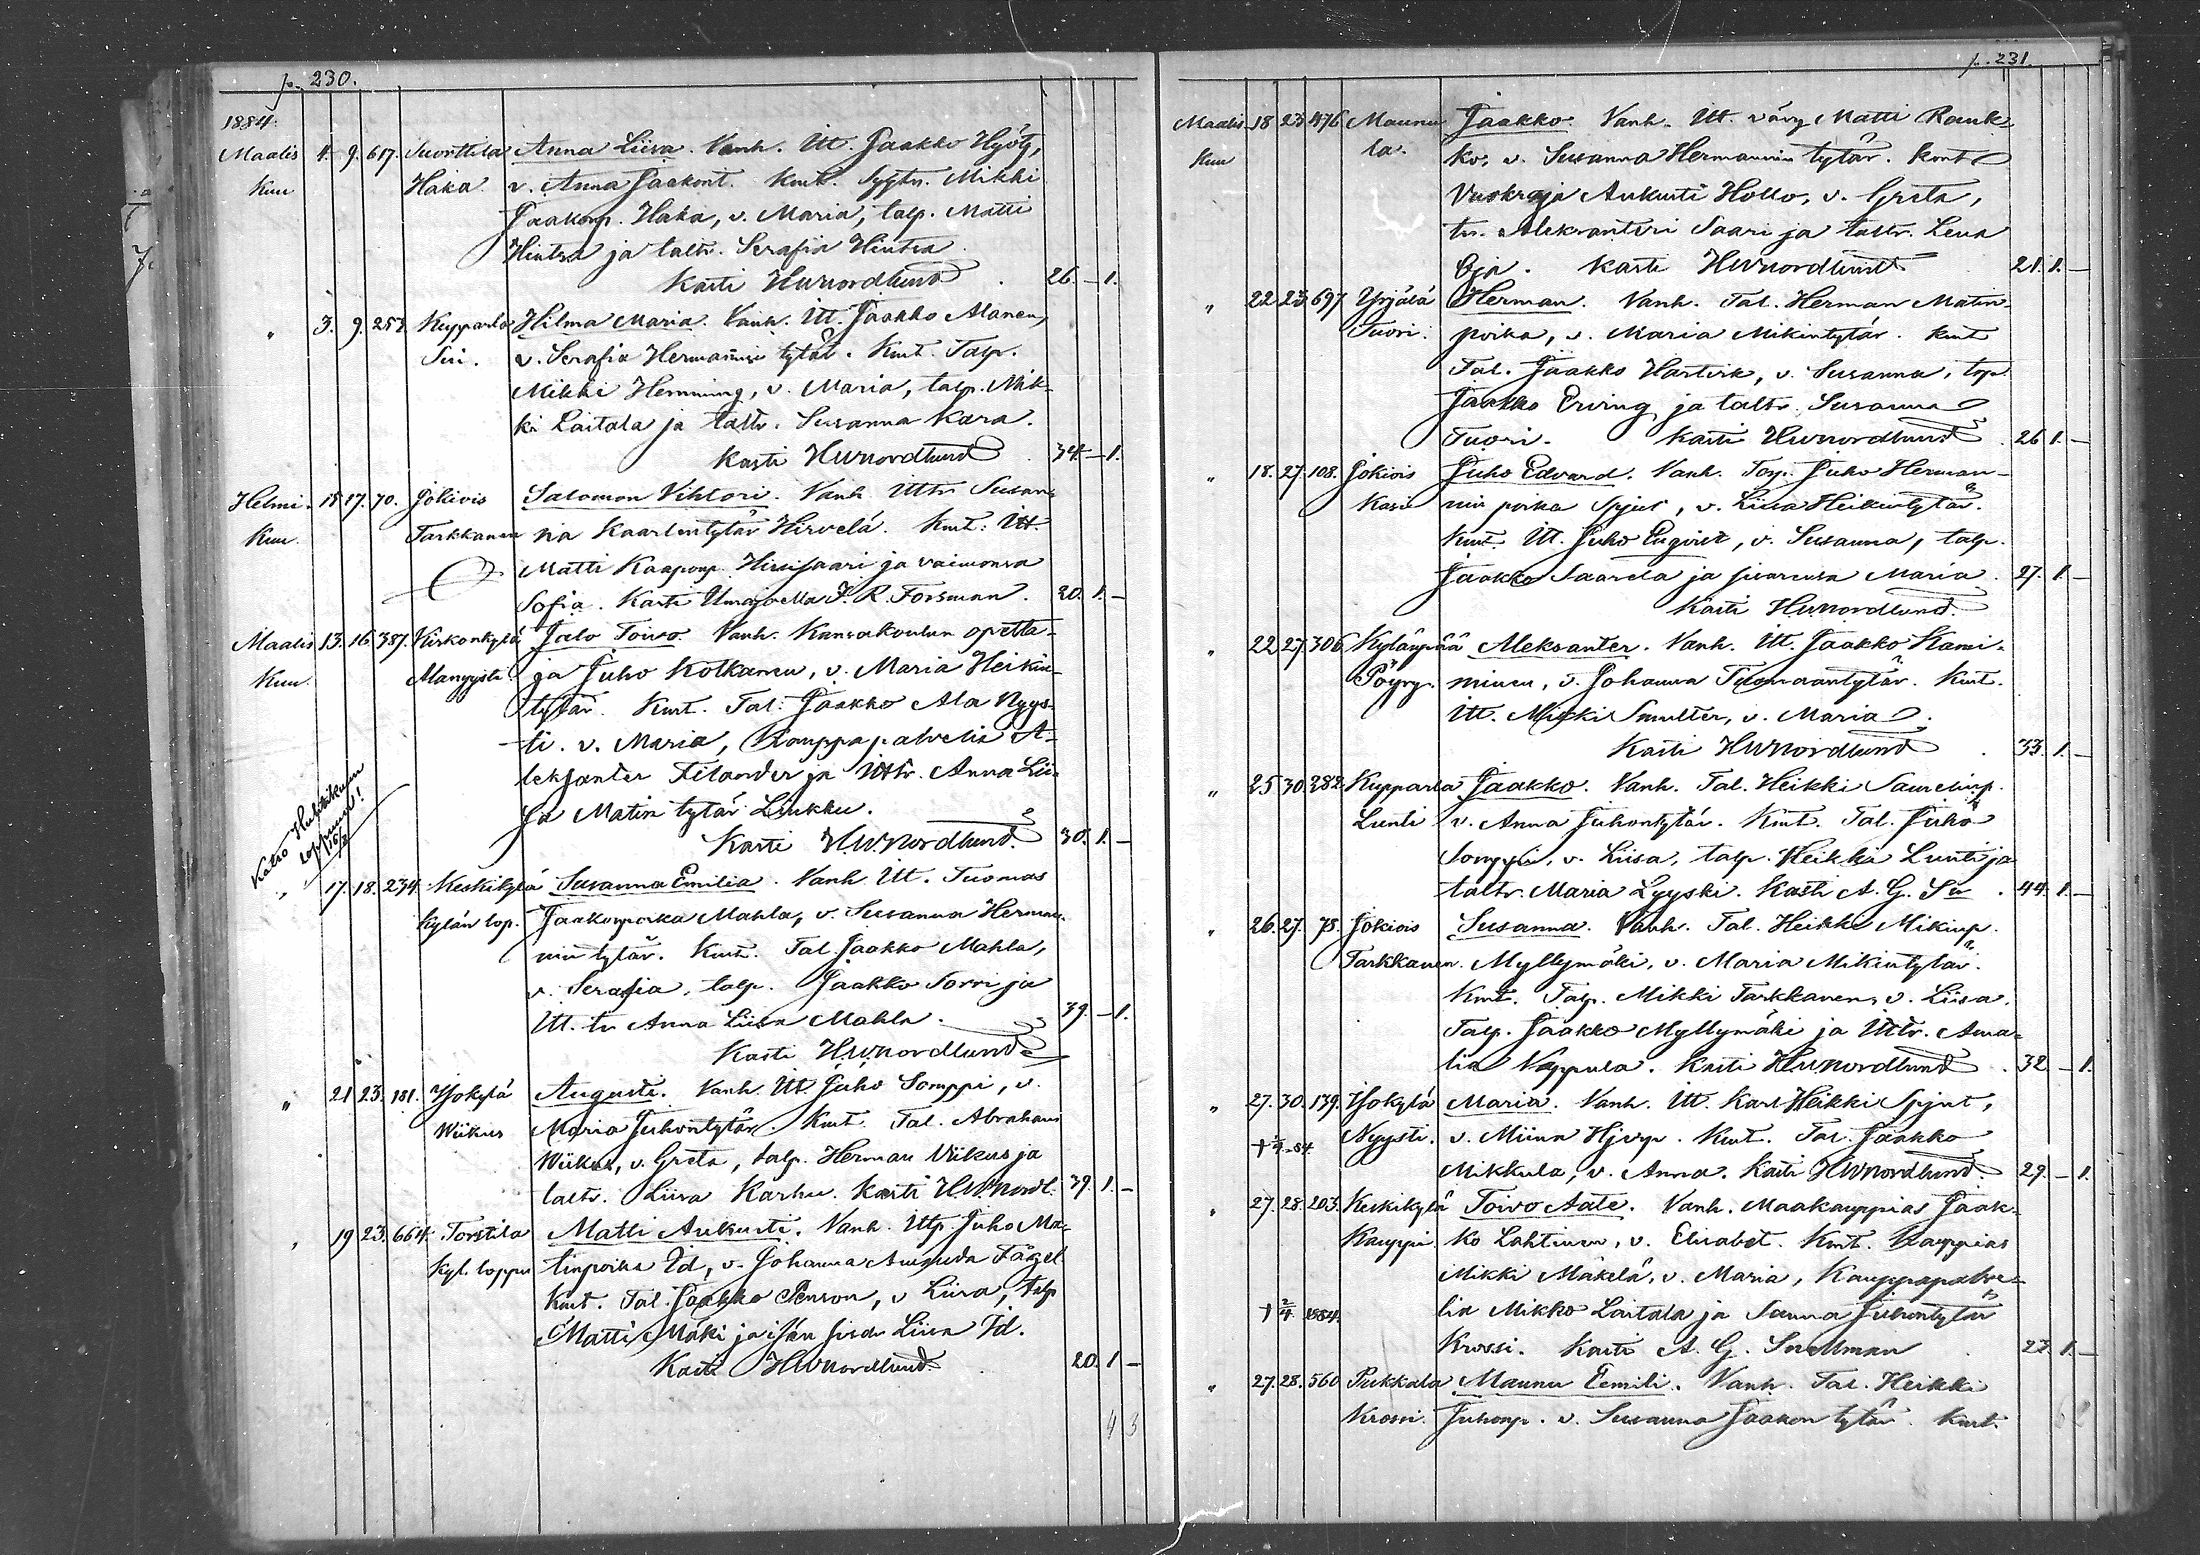 p. 230.
1884.
Maalis 4. 9. 617. Suorttila Anna Liisa. Vanh. Itt. Jaakko Hyöty,
Kuu Haka v. Anna Jaakont. Kmt. Sygtn. Mikki
Jaakonp. Haka, v. Maria, talp. Matti
Hintsa ja taltr. Serafia Hintsa
Kasti HWNordlund . 26. – 1.
" 3. 9. 253. Kupparla Hilma Maria. Vanh. Itt. Jaakko Alanen,
Siri. v. Serafia Hermannin tytär. Kmt. Talp.
Mikki Hemming, v. Maria, talp. Mik-
ki Laitala ja taltr. Susanna Kara.
Kasti HWNordlund . 34. – 1.
Helmi- 15 17. 70. Jokiois Salomon Vihtori. Vanh. Ittr. Susan-
Kuu. Tarkkanen na Kaarlentytär Hirvelä. Kmt. Itt.
Matti Kaaponp. Hirvisaari ja vaimonsa
Sofia. Kasti Urajoella J. R. Forsman. 20. 1. –
Maalis 13. 16. 387. Kirkonkylä Jalo Toivo. Vanh. Kansakoulun opetta-
Kuu. Alanyysti. ja Juho Kotkanen, v. Maria Heikin
tytär. Kmt. Tal. Jaakko Ala Nyys-
ti. v. Maria, Kauppapalvelia A-
leksanter Filander ja Ittr. Anna Lii-
sa Matin tytär Liukku.
Kasti H.W.Nordlund. 30. 1. –
Katso Huhtikuun
loppuun!
16/3
" 17. 18. 234. Keskikylä Susanna Emilia. Vanh. Itt. Tuomas
Kylän lop. Jaakonpoika Mahla, v. Susanna Herman-
nin tytär. Kmt. Tal. Jaakko Mahla,
v. Serafia, talp. Jaakko Sorri ja
Itt. tr. Anna Liisa Mahla. 39. – 1.
Kasti H.W.Nordlund
" 21 23. 181. Isokylä Augusti. Vanh. Itt. Juho Somppi, v.
Wiikus Maria Juhontytär. Kmt. Tal. Abraham
Wiikus, v. Greta, talp. Herman Wiikus ja
taltr. Liisa Karhu. Kasti H.W.Nordl. 39. 1. –
" 19 23. 664. Torttila Matti Aukusti. Vanh. Itp. Juho Ma-
Kyl. loppu tinpoika Id, v. Johanna Amanda Fågel
Kmt. Tal. Jaakko Penson, v. Liisa, talp
Matti Mäki ja isän sisar Liisa Id.
Kasti HWNordlund . 20. 1 –
4 3
p. 231.
Maalis 18 23 476 Maunu Jaakko. Vanh. Itt. vävy Matti Rauk-
Kuu la. ko, v. Susanna Hermannin tytär. Kmt
Vuokraaja Aukusti Hollo, v. Greta,
tr. Aleksanteri Saari ja taltr. Lena
Oja. Kasti HWNordlund 21. 1. –
" 22 23. 697 Yrjälä Herman. Vanh. Tal. Herman Matin-
Tuori. poika, v. Maria Mikintytär. Kmt
Tal. Jaakko Hartvik, v. Susanna, talp.
Jaakko Erving ja taltr. Susanna
Tuori. Kasti HWNordlund . 26 1. –
" 18. 27. 108. Jokiois Juho Edvard. Vanh. Torp. Juho Herman-
Kasu nin poika Spjut, v. Liisa Heikintytär.
Kmt. Itt. Juho Enqvist, v. Susanna, talp.
Jaakko Saarela ja sisarensa Maria . 27. 1. –
Kasti HWNordlund.
" 22 27. 306 Kylänpää Aleksanter. Vanh. Itt. Jaakko Kami-
Pöyry. minen, v. Johanna Tuomaantytär. Kmt.
Itt. Mikki Smulter, v. Maria.
Kasti HWNordlund . 33. 1. –
" 25 30. 282. Kupparla Jaakko. Vanh. Tal. Heikki Samelinp.
Lunti v. Anna Juhontytär. Kmt. Tal. Juho
Somppi, v. Liisa, talp. Heikki Lunti ja
taltr. Maria Lyyski. Kasti A. G. Sn . 44. 1. –
" 26. 27. 75. Jokiois Susanna. Vanh. Tal. Heikki Mikinp.
Tarkkanen. Myllymäki, v. Maria Mikintytär.
Kmt. Talp. Mikki Tarkkanen, v. Liisa.
Talp. Jaakko Myllymäki ja Ittr. Ama-
lia Nappula. Kasti HWNordlund . 32 – 1.
" 27. 30. 139. Isokylä Maria. Vanh. Itt. Karl Heikki Spjut,
† 2/4 -84. Nyysti. v. Miina Hjerp. Kmt. Tal. Jaakko
Mikkula, v. Anna. Kasti HWNordlund. 29. – 1.
" 27. 28. 203. Keskikylä Toivo Aate. Vanh. Maakauppias Jaak-
Kauppi. ko Lahtinen, v. Elisabet. Kmt. Kauppias
Mikki Mäkelä, v. Maria, Kauppapalve-
† 2/4 1884. lia Mikko Laitala ja Sanna Juhontytär
Krossi. Kasti A. G. Snellman . 23. 1. –
" 27. 28. 560 Pukkala Maunu Eemili. Vanh. Tal. Heikki
Krossi. Juhonp. v. Susanna Jaakon tytär. Kmt.